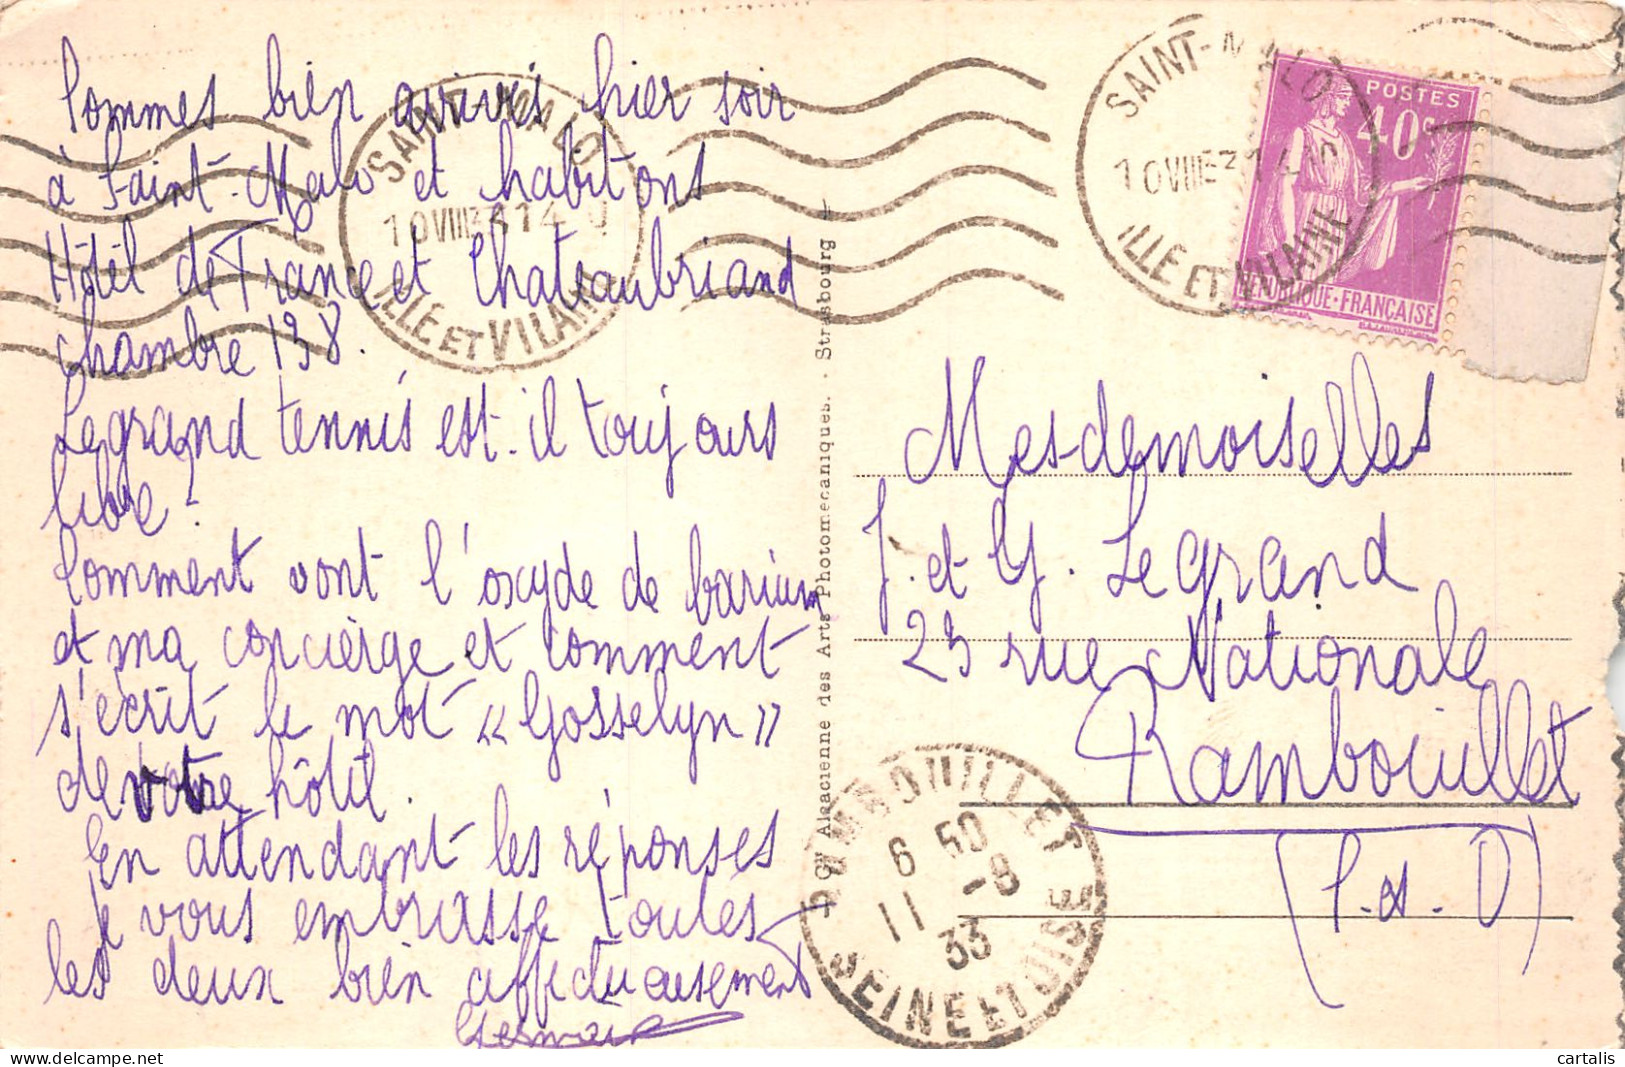 Sommes bien arrivés hier soir
à Saint-Malo et habitons
Hôtel de France et Chateaubriand
chambre 138.
Le grand tennis est-il toujours
libre ?
Comment vont l'oxyde de barium
et ma concierge et comment
s'écrit le mot « Gosselyn »
de votre hôtel.
En attendant les réponses
je vous embrasse toutes
les deux bien affectueusement
SAINT-MALO
10 VIII 33 14
ILLE ET VILAINE
SAINT-MALO
10 VIII 33
ILLE ET VILAINE
POSTES
40c
REPUBLIQUE·FRANÇAISE
Alsacienne des Arts Photomecaniques. - Strasbourg
Mesdemoiselles
J. et G. Legrand
23 rue Nationale
Rambouillet
(S. & O)
RAMBOUILLET
6 50
11 -8
33
SEINE ET OISE
cartalis